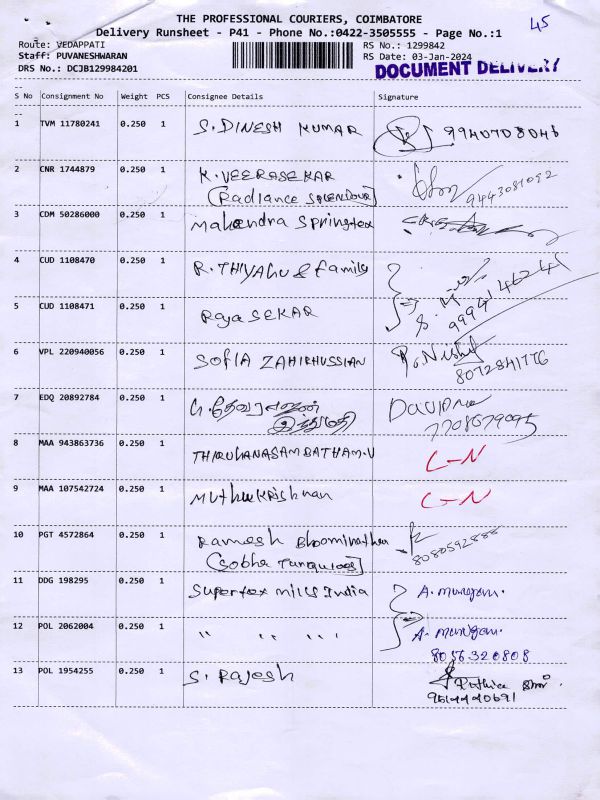 45
THE PROFESSIONAL COURIERS, COIMBATORE
Delivery Runsheet - P41 - Phone No.:0422-3505555 - Page No.:1
Route: VEDAPPATI
RS No.: 1299842
Staff: PUVANESHWARAN
RS Date: 03-Jan-2024
DRS No.: DCJB129984201
DOCUMENT DELIVERY
--
S No Consignment No Weight PCS Consignee Details Signature
--
1 TVM 11780241 0.250 1 S. DINESH KUMAR 9940708046
2 CNR 1744879 0.250 1 K. VEERASEKAR
[Radiance SPLENDOUR] 9443081092
3 CDM 50286000 0.250 1 Mahendra Springtex
4 CUD 1108470 0.250 1 R. THIYAGU & family
9994146241
5 CUD 1108471 0.250 1 Raja SEKAR
6 VPL 220940056 0.250 1 SOFIA ZAHIRHUSSIAN
8072841776
7 EDQ 20892784 0.250 1
7708679095
8 MAA 943863736 0.250 1 THIRUGNASAMBATHAM.V L-N
9 MAA 107542724 0.250 1 Muthukrishnan L-N
10 PGT 4572864 0.250 1 Ramesh Bhoominathan
[Sobha Turquoise]
11 DDG 198295 0.250 1 Supertex mills India A. murugan.
12 POL 2062004 0.250 1 " " " A. murugan.
8056320808
13 POL 1954255 0.250 1 S. Rajesh